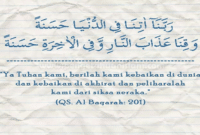 رَبَّنَآ اٰتِنَا فِى الدُّنْيَا حَسَنَةً
وَّفِى الْاٰخِرَةِ حَسَنَةً وَّقِنَا عَذَابَ النَّارِ
"Ya Tuhan kami, berilah kami kebaikan di dunia
dan kebaikan di akhirat dan peliharalah
kami dari siksa neraka."
(QS. Al Baqarah: 201)